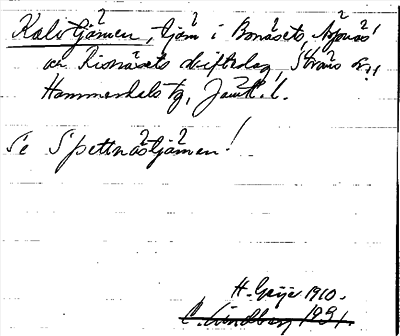 Kalvtjärnen, tjärn i Bonäsets, Åsjönäs
och Risnäsets skifteslag, Ströms sn,
Hammerdals tg, Jämtl. l.
Se Spettnästjärnen!
H. Geijer 1910.
C. Lindberg 1931.